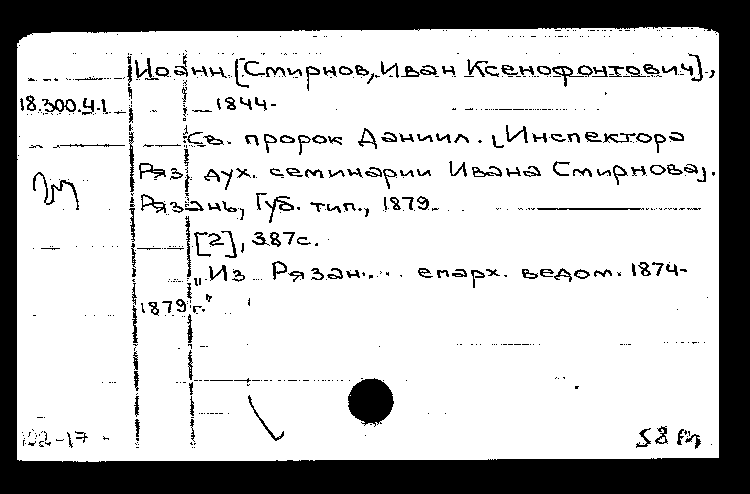 Иоанн [Смирнов, Иван Ксенофонтович],
18.300.4.1
1844-
Св. пророк Даниил. [Инспектора
Ряз. дух. семинарии Ивана Смирнова].
Рязань, Губ. тип., 1879.
[2], 387с.
„Из Рязан... епарх. ведом. 1874-
1879 г."
102-17 -